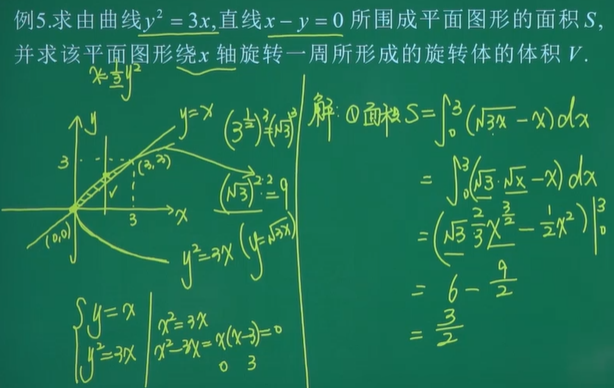 例5.求由曲线y² = 3x,直线x − y = 0 所围成平面图形的面积S,
并求该平面图形绕x 轴旋转一周所形成的旋转体的体积 V.
x=1/3y²
y
y=x
3
(3,3)
x
3
(0,0)
y²=3x (y=√3x)
(3^(1/2))³=(√3)³
(√3)^(2·2)=9
{y=x
y²=3x
x²=3x
x²-3x=x(x-3)=0
0 3
解:①面积S=∫₀³(√3x-x)dx
=∫₀³(√3·√x-x)dx
=(√3 2/3 x^(3/2) - 1/2x²)|₀³
= 6 - 9/2
= 3/2